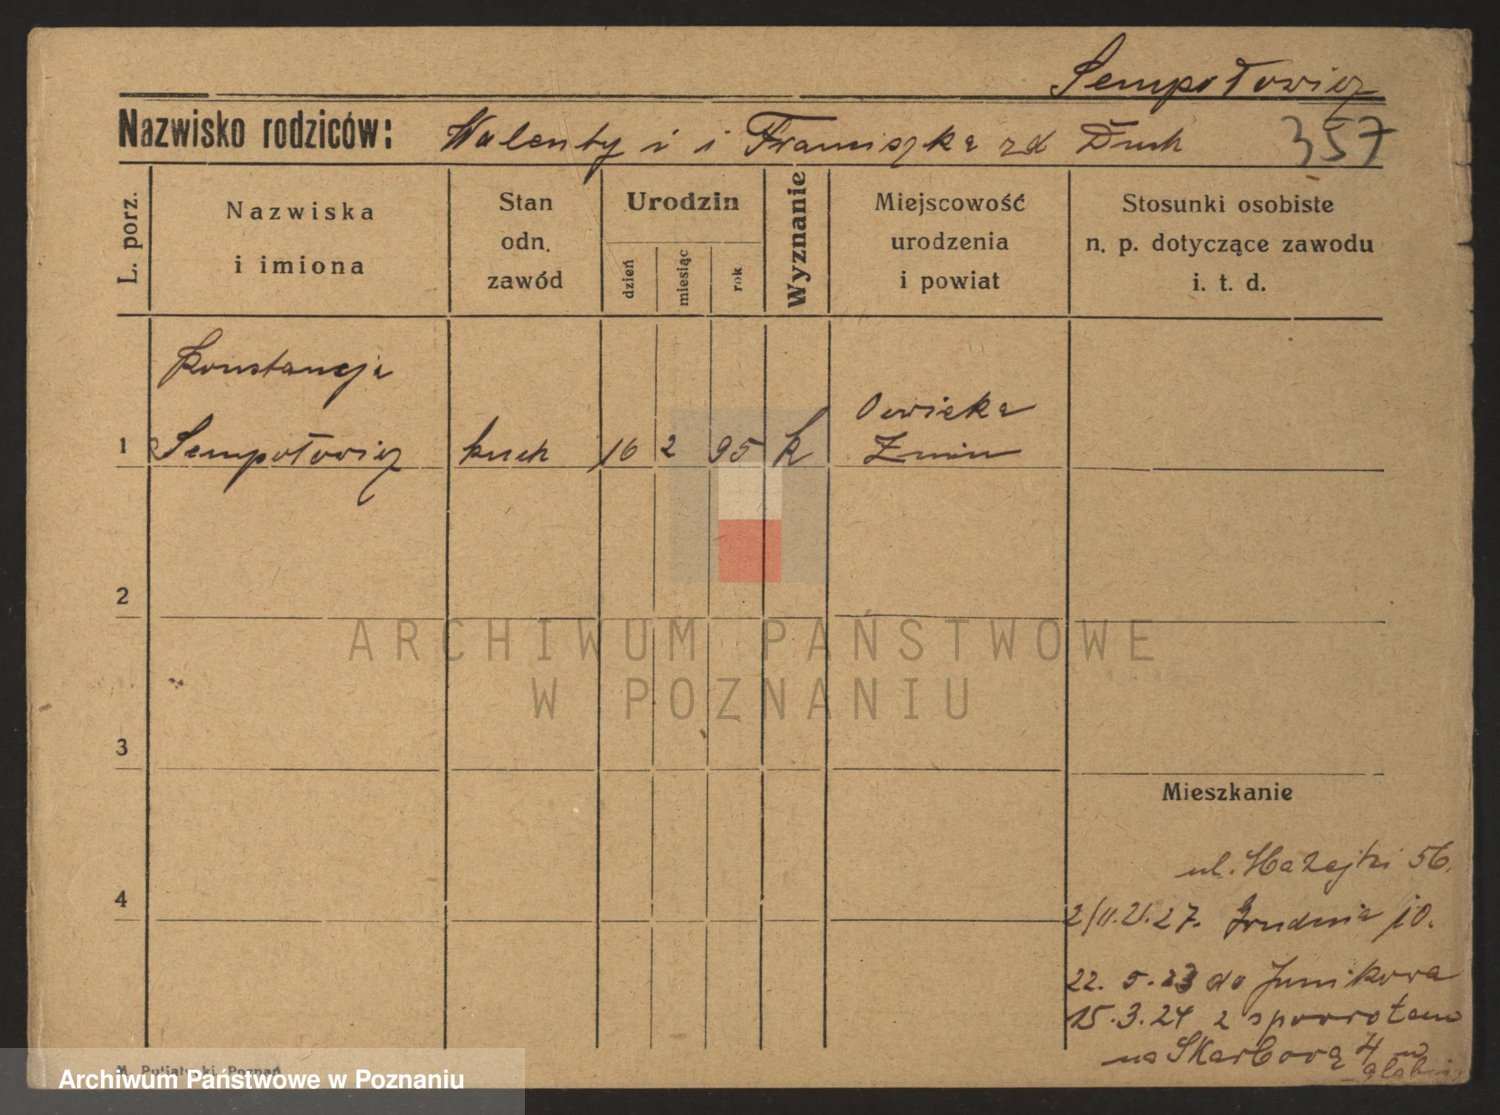 Sempołowicz
Nazwisko rodziców: Walenty i Franciszka zd Druk
357
L. porz.
Nazwiska
i imiona
Stan
odn.
zawód
Urodzin
dzień
miesiąc
rok
Wyznanie
Miejscowość
urodzenia
i powiat
Stosunki osobiste
n. p. dotyczące zawodu
i. t. d.
Konstancja
1 Sempołowicz kuch 16 2 95 k
Owieka
Żnin
2
ARCHIWUM PAŃSTWOWE
W POZNANIU
3
4
Mieszkanie
ul. 56.
27. Grudnia 10.
22. 5. 23 do Junikowa
15. 3. 24 z spowrotem
na Skarbową 4
Poznań
Archiwum Państwowe w Poznaniu